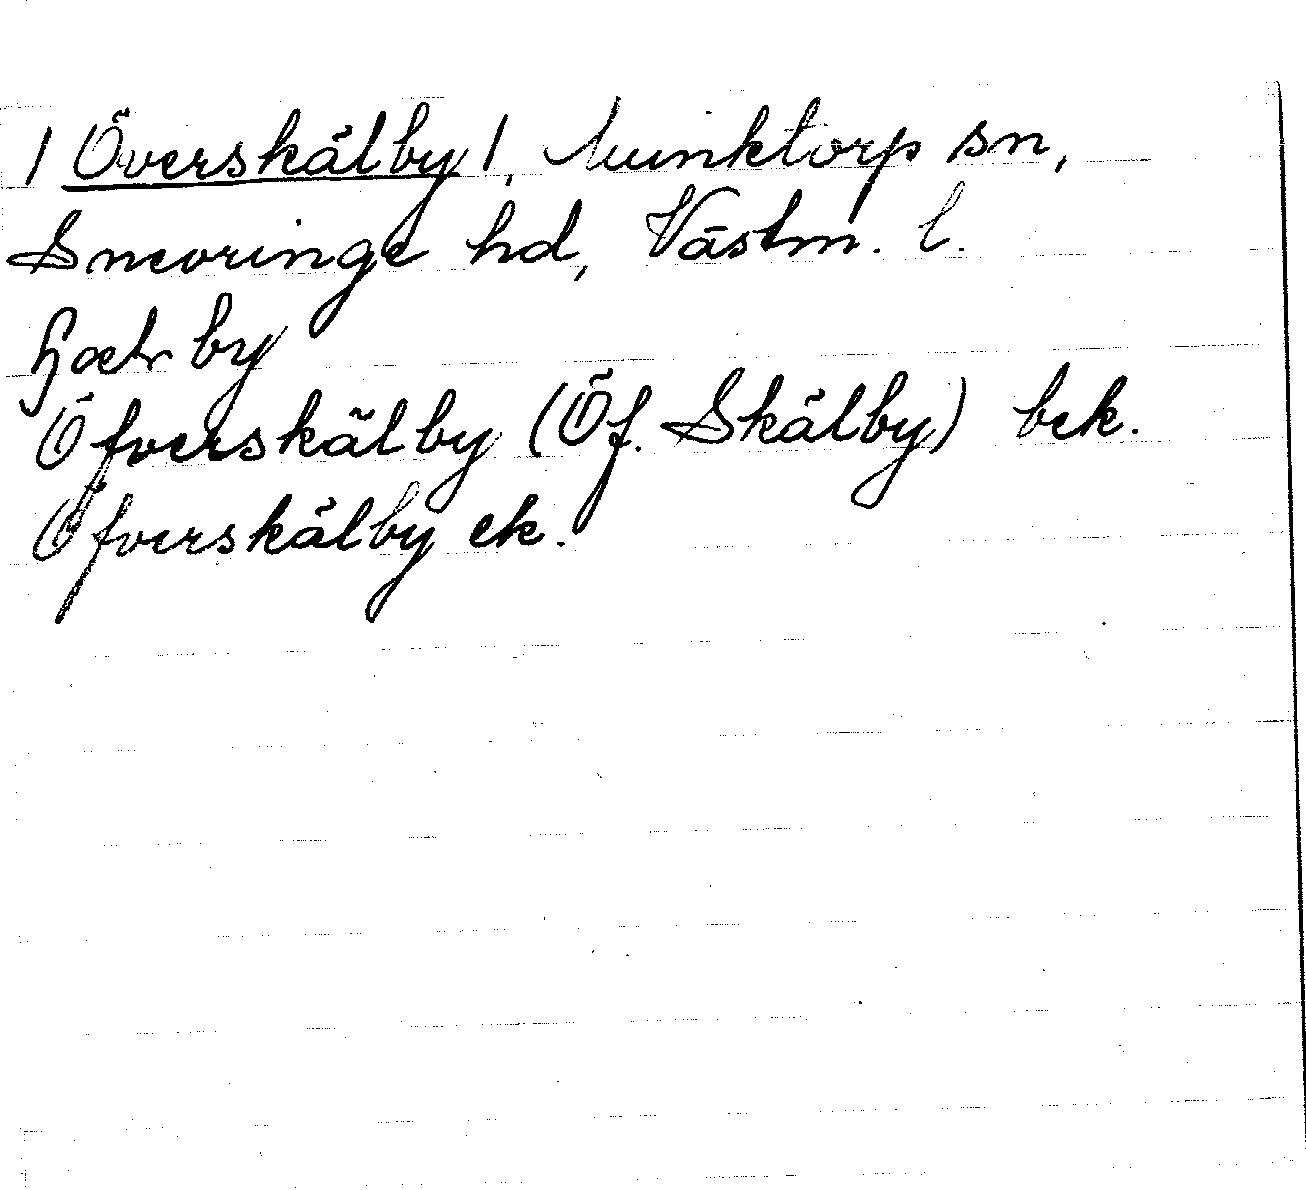 / Överskälby /, Munktorp sn,
Snevringe hd, Västm. l.
by
Öfverskälby (Öf. Skälby) bek.
Öfverskälby ek.